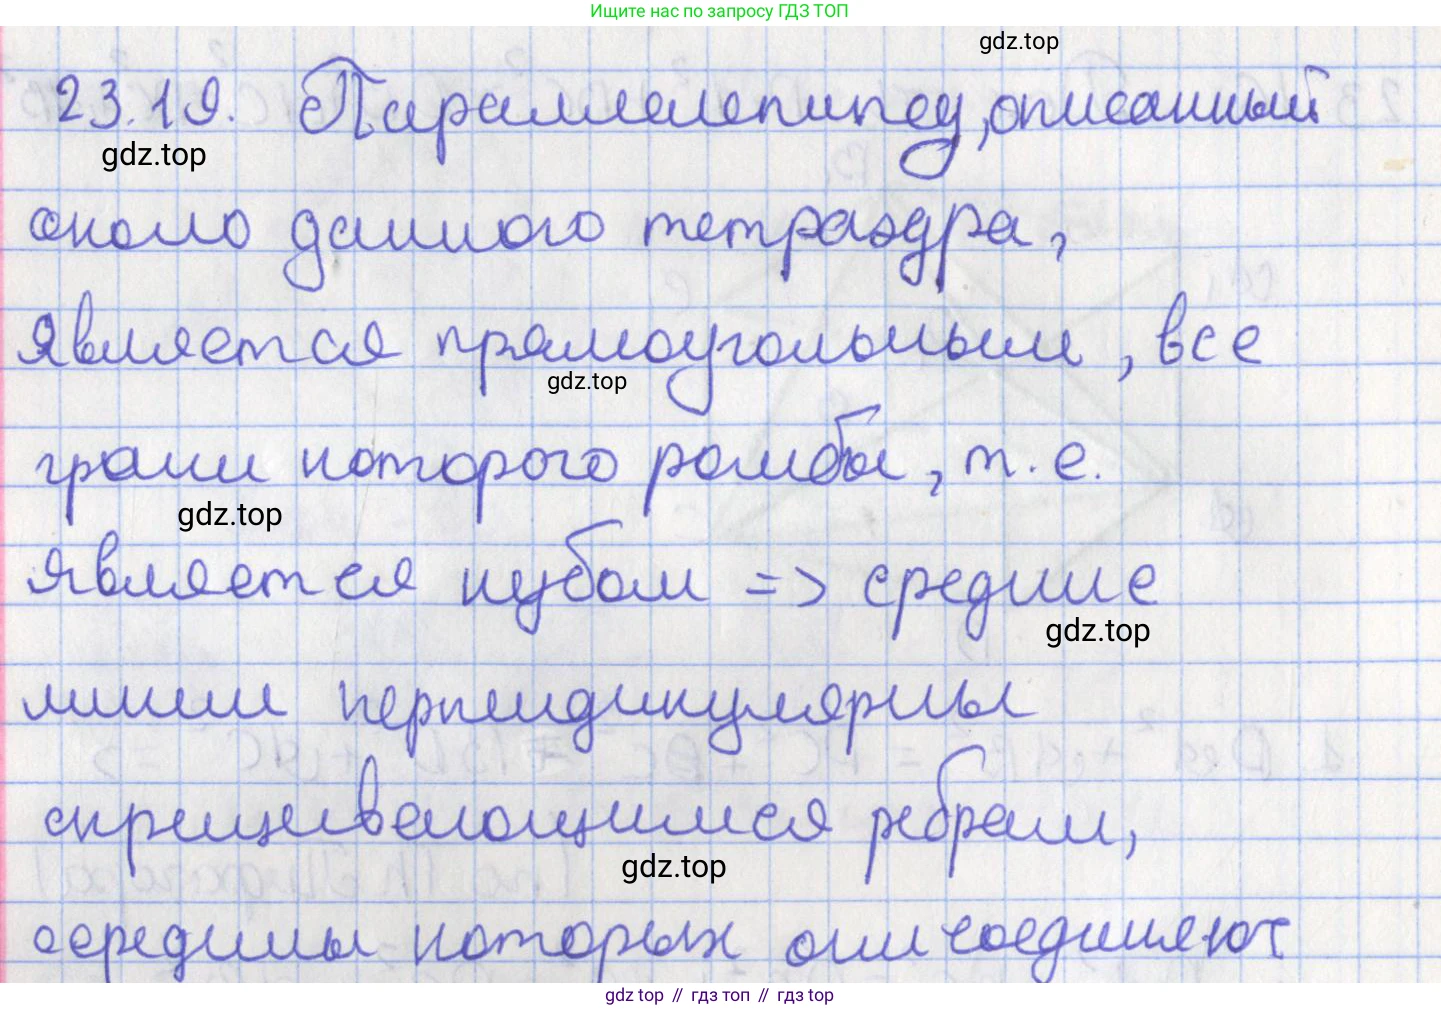 Ищите нас по запросу ГДЗ ТОП
gdz.top
23.19. Параллелепипед, описанный
gdz.top
около данного тетраэдра,
является прямоугольным, все
gdz.top
грани которого ромбы, т.е.
gdz.top
является кубом => средние
gdz.top
линии перпендикулярны
скрещивающимся ребрам,
gdz.top
середины которых они соединяют
gdz top // гдз топ // gdz top